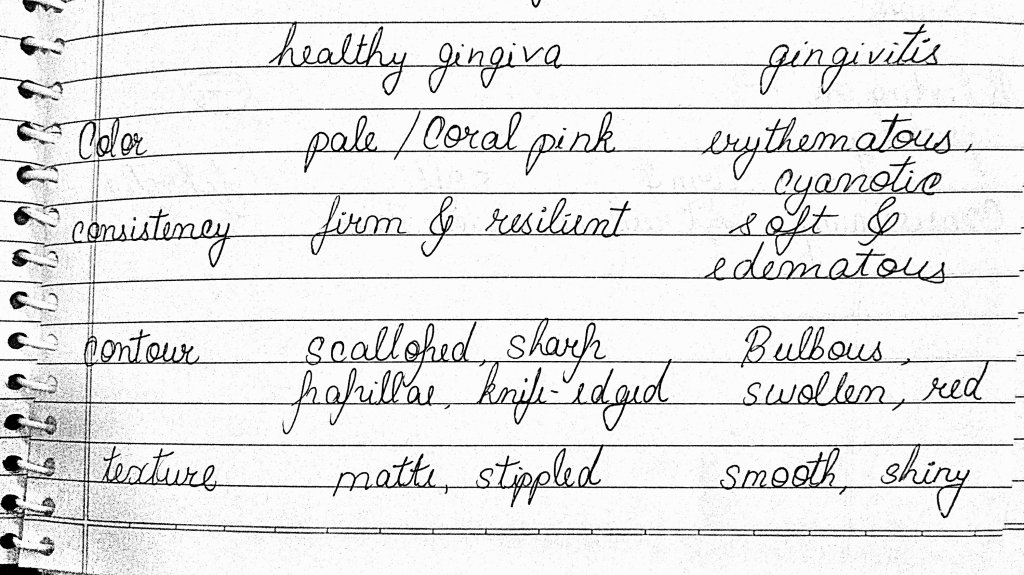 healthy gingiva gingivitis
Color pale / Coral pink erythematous,
cyanotic
consistency firm & resilient soft &
edematous
contour scalloped, sharp Bulbous,
papillae, knife-edged swollen, red
texture matte, stippled smooth, shiny